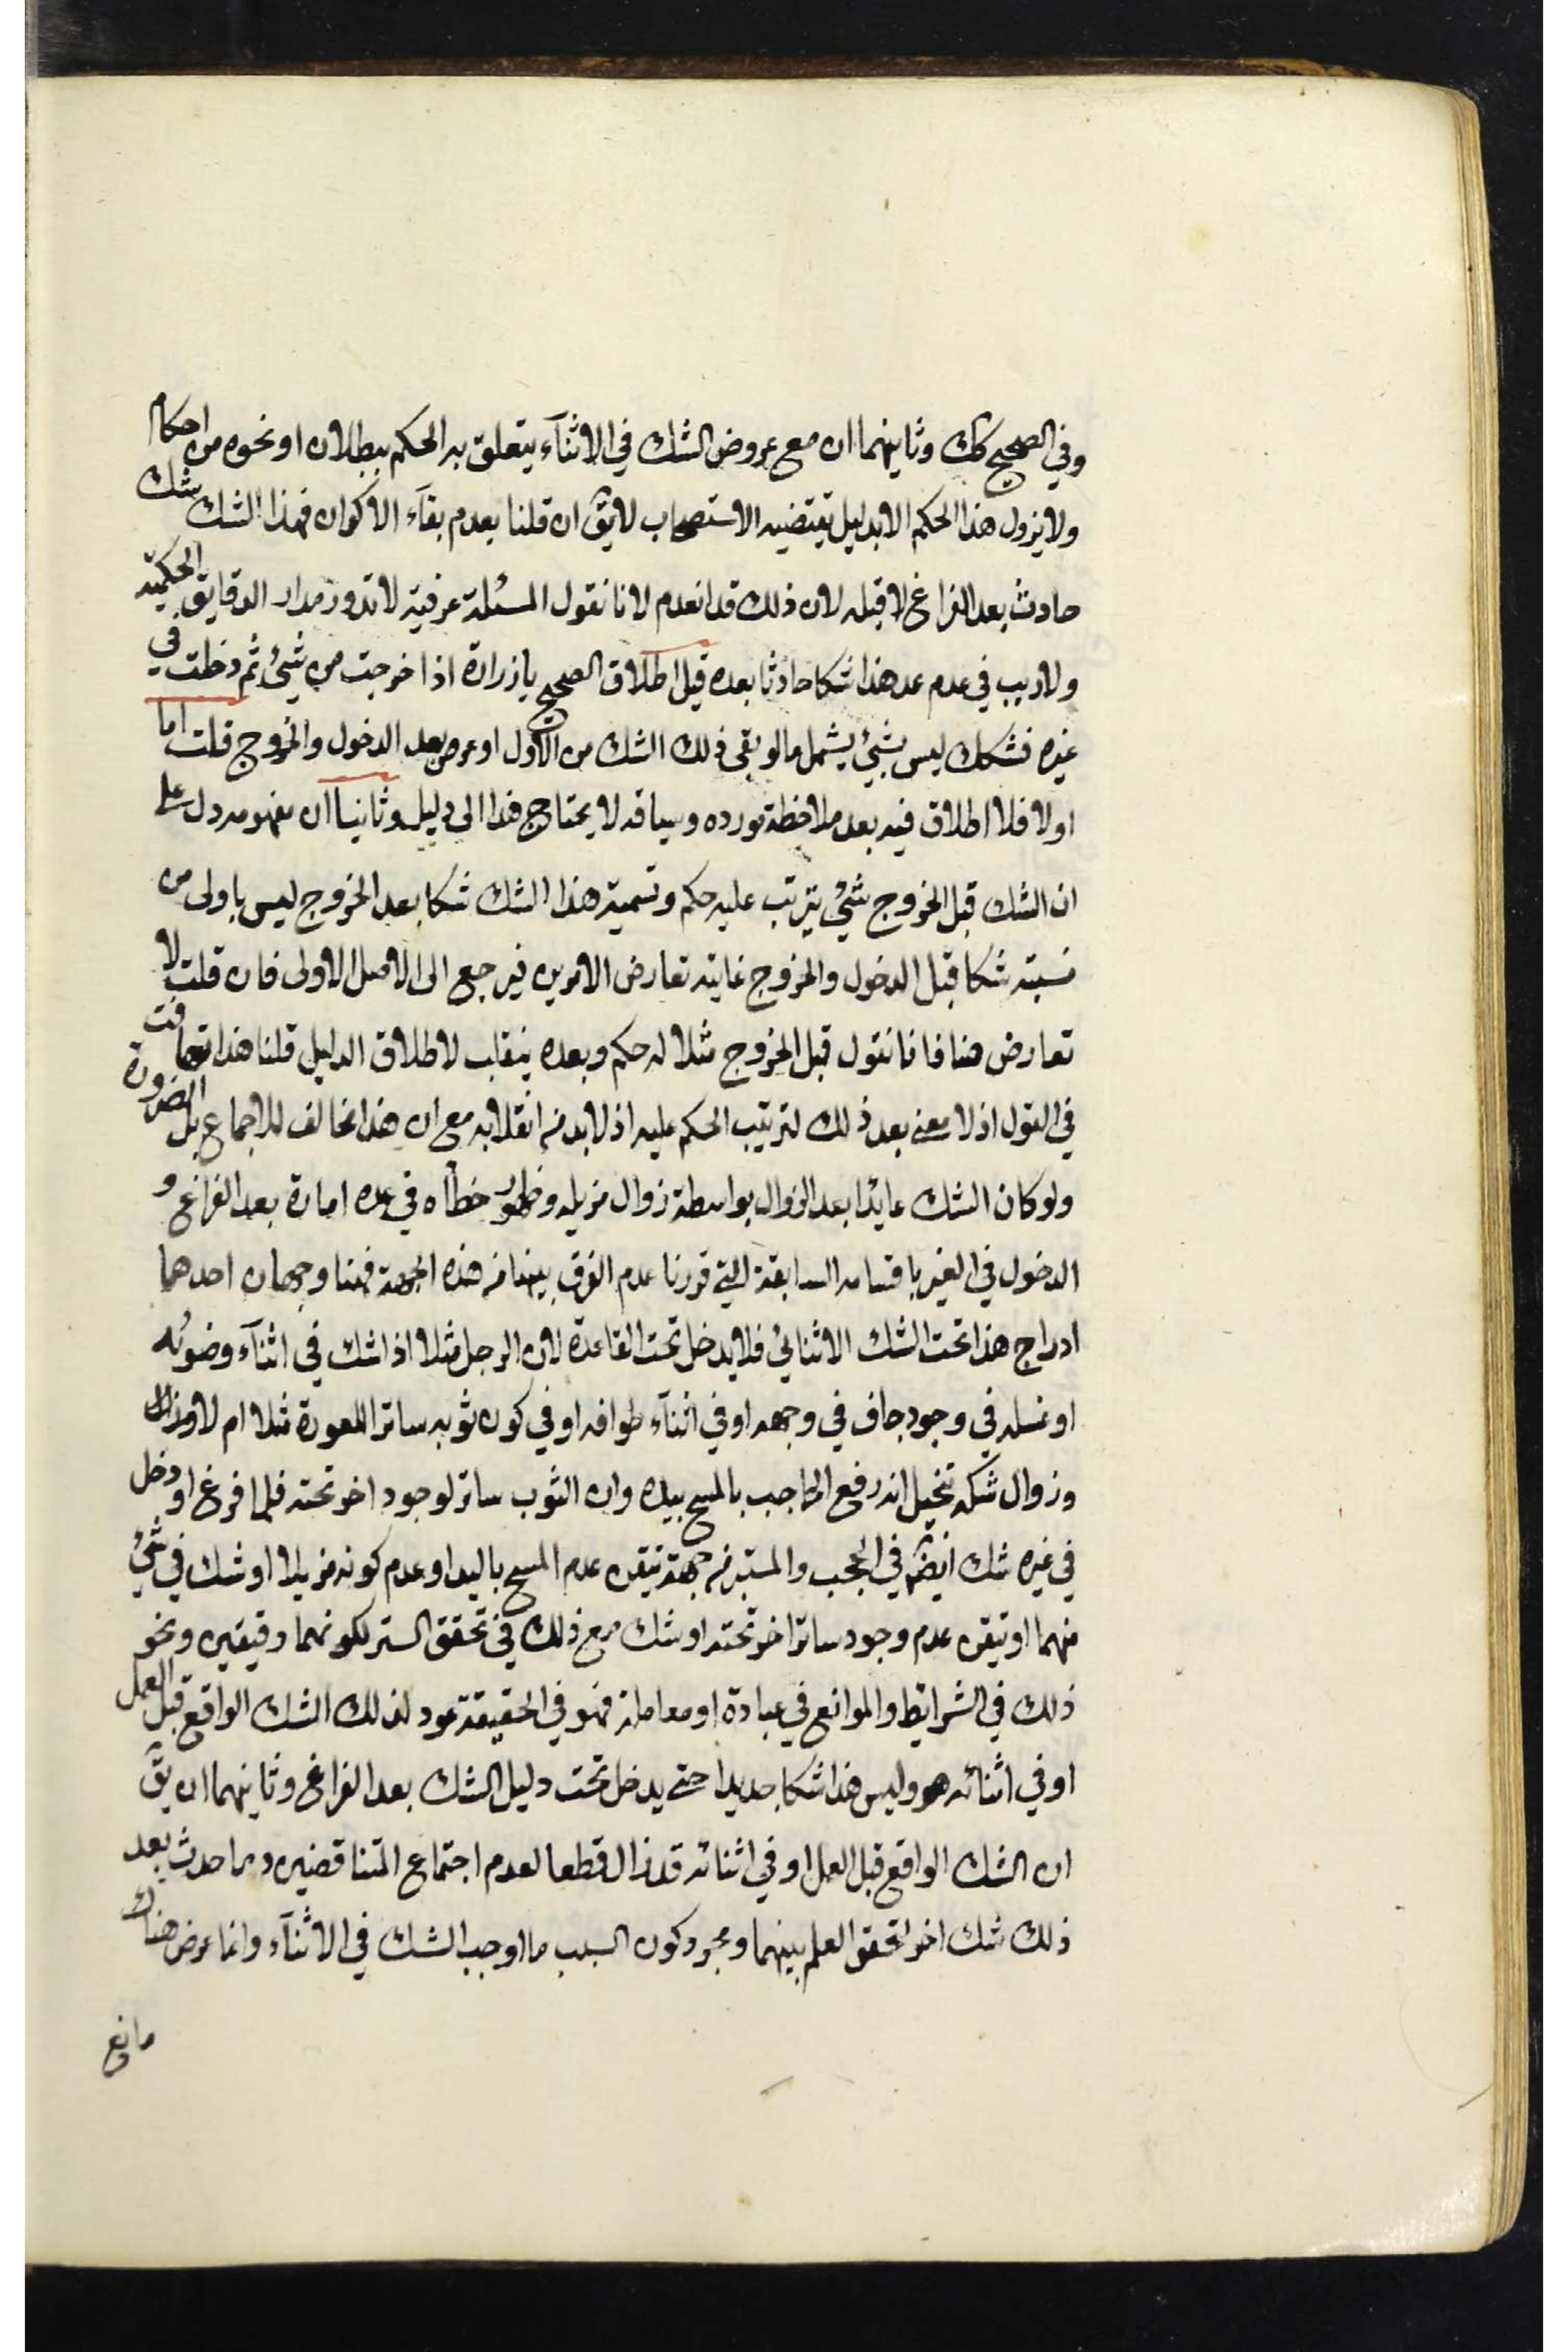 وفي الصحيح كك وثانيهما ان مع عروض الشك في الاثنآء يتعلق به الحكم ببطلان او نحوه من احكام
ولا يزول هذا الحكم الا بدليل يقتضيه الاستصحاب لا يق ان قلنا بعدم بقآء الاكوان فهذا الشك شك
حادث بعد الفراغ لا قبله لان ذلك قد انعدم لانا نقول المسئلة عرفية لا تدور مدار الدقايق الحكمية
ولا ريب في عدم عد هذا شكا حادثا بعده قيل اطلاق الصحيح يا زرارة اذا خرجت من شيئ ثم دخلت في
غيره فشكك ليس بشيئ يشمل ما لو بقي ذلك الشك من الاول او عرض بعد الدخول والخروج قلت اما
اولا فلا اطلاق فيه بعد ملاحظة مورده وسياقه لا يحتاج هذا الى دليل وثانيا ان مفهومه دل على
ان الشك قبل الخروج شيئ يترتب عليه حكم وتسمية هذا الشك شكا بعد الخروج ليس باولى من
نسبته شكا قبل الدخول والخروج غايته تعارض الامرين فيرجع الى الاصل الاولى فان قلت لا
تعارض هنا فانا نقول قبل الخروج مثلا له حكم وبعده ينقلب لاطلاق الدليل قلنا هذا تهافت
في القول اذ لا معنى بعد ذلك لترتيب الحكم عليه اذ لا بد من انقلابه مع ان هذا مخالف للاجماع بل الضرورة
ولو كان الشك عايدا بعد الزوال بواسطة زوال مزيله وظهور خطاه في عده امارة بعد الفراغ و
الدخول في الغير باقسامه السابقة التي قررنا عدم الفرق بينها من هذه الجهة فهنا وجهان احدهما
ادراج هذا تحت الشك الاثنائي فلا يدخل تحت القاعدة لان الرجل مثلا اذا شك في اثنآء وضوئه
او غسله في وجود جاف في وجهه او في اثنآء طوافه او في كون ثوبه ساترا للعورة مثلا ام لا وزال
وزوال شكه تخيل انه رفع الحاجب بالمسح بيده وان الثوب ساتر لوجود اخر تحته فلما فرغ او دخل
في غيره شك ايضا في الحجب والستر من جهة تيقن عدم المسح باليد او عدم كونه مزيلا او شك في شيئ
منهما او تيقن عدم وجود ساتر اخر تحته او شك مع ذلك في تحقق الستر لكونهما رقيقين ونحو
ذلك في الشرايط والموانع في عبادة او معاملة فهو في الحقيقة عود لذلك الشك الواقع قبل العمل
او في اثنائه هو وليس هذا شكا جديدا حتى يدخل تحت دليل الشك بعد الفراغ وثانيهما ان يق
ان الشك الواقع قبل العمل او في اثنائه قد زال قطعا لعدم اجتماع المتناقضين وما حدث بعد
ذلك شك اخر لتحقق العلم بينهما ومجرد كون السبب ما اوجب الشك في الاثنآء وانما عرض هناك
مانع